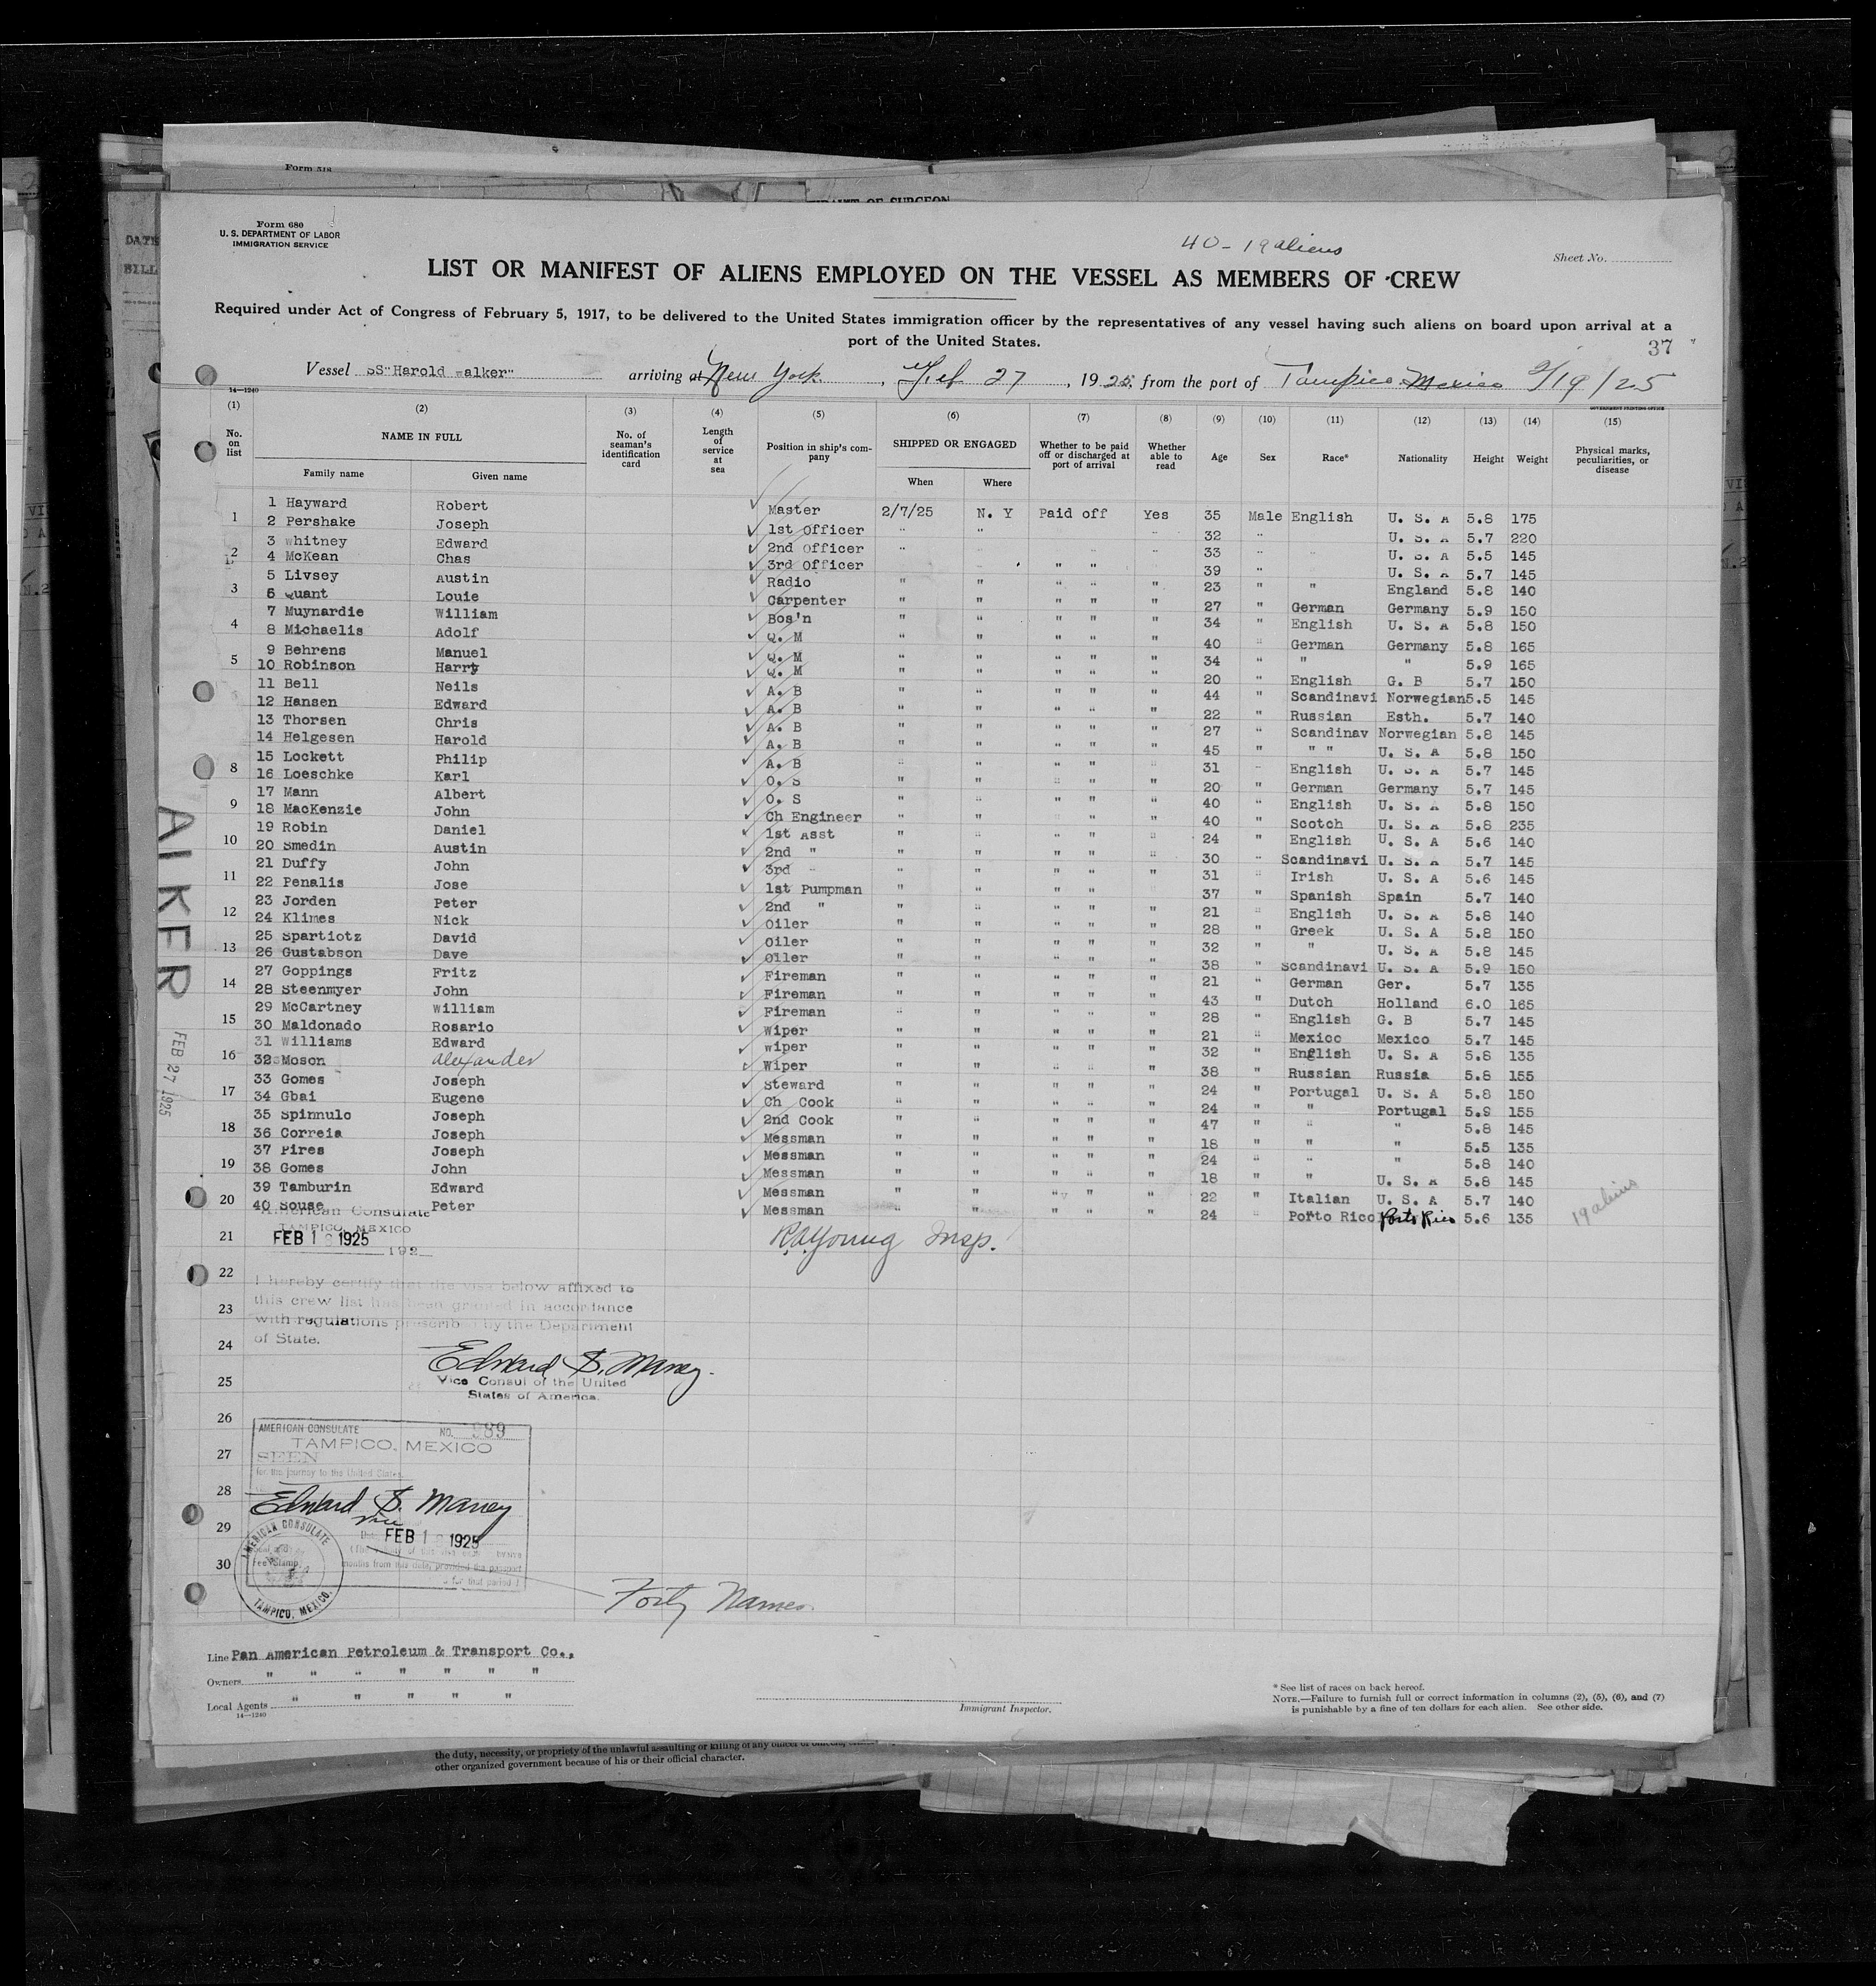 Form 680
U. S. DEPARTMENT OF LABOR
IMMIGRATION SERVICE
40 - 19 aliens
Sheet No.
LIST OR MANIFEST OF ALIENS EMPLOYED ON THE VESSEL AS MEMBERS OF CREW
Required under Act of Congress of February 5, 1917, to be delivered to the United States immigration officer by the representatives of any vessel having such aliens on board upon arrival at a
port of the United States.
37
Vessel SS"Harold Walker" arriving at New York, Feb 27, 1925, from the port of Tampico Mexico 2/19/25
14—1240
GOVERNMENT PRINTING OFFICE
(1) (2) (3) (4) (5) (6) (7) (8) (9) (10) (11) (12) (13) (14) (15)
No. on list NAME IN FULL Family name Given name No. of seaman's identification card Length of service at sea Position in ship's company SHIPPED OR ENGAGED When Where Whether to be paid off or discharged at port of arrival Whether able to read Age Sex Race* Nationality Height Weight Physical marks, peculiarities, or disease
1 Hayward Robert Master 2/7/25 N. Y Paid off Yes 35 Male English U. S. A 5.8 175
2 Pershake Joseph 1st Officer " " " 32 " U. S. A 5.7 220
3 Whitney Edward 2nd Officer " " " " 33 " U. S. A 5.5 145
4 McKean Chas 3rd Officer " " 39 U. S. A 5.7 145
5 Livsey Austin Radio " " " " " 23 " " England 5.8 140
6 Quant Louie Carpenter " " " " " 27 " German Germany 5.9 150
7 Muynardie William Bos'n " " " " " 34 " English U. S. A 5.8 150
8 Michaelis Adolf Q. M " " " " " 40 " German Germany 5.8 165
9 Behrens Manuel Q. M " " " " " 34 " " " 5.9 165
10 Robinson Harry Q. M " " " " " 20 " English G. B 5.7 150
11 Bell Neils A. B " " " " " 44 " Scandinavi Norwegian 5.5 145
12 Hansen Edward A. B " " " " " 22 " Russian Esth. 5.7 140
13 Thorsen Chris A. B " " " " " 27 " Scandinav Norwegian 5.8 145
14 Helgesen Harold A. B " " " " " 45 " " " U. S. A 5.8 150
15 Lockett Philip A. B " " " " " 31 " English U. S. A 5.7 145
16 Loeschke Karl O. S " " " " " 20 " German Germany 5.7 145
17 Mann Albert O. S " " " " " 40 " English U. S. A 5.8 150
18 MacKenzie John Ch Engineer " " " " " 40 " Scotch U. S. A 5.8 235
19 Robin Daniel 1st Asst " " " " " 24 " English U. S. A 5.6 140
20 Smedin Austin 2nd " " " " " " 30 " Scandinavi U. S. A 5.7 145
21 Duffy John 3rd " " " " " " 31 " Irish U. S. A 5.6 145
22 Penalis Jose 1st Pumpman " " " " 37 " Spanish Spain 5.7 140
23 Jorden Peter 2nd " " " " " " 21 " English U. S. A 5.8 140
24 Klimes Nick Oiler " " " " " 28 " Greek U. S. A 5.8 150
25 Spartiotz David Oiler " " " " " 32 " " U. S. A 5.8 145
26 Gustabson Dave Oiler " " " " " 38 " Scandinavi U. S. A 5.9 150
27 Goppings Fritz Fireman " " " " " 21 " German Ger. 5.7 135
28 Steenmyer John Fireman " " " " " 43 " Dutch Holland 6.0 165
29 McCartney William Fireman " " " " " 28 " English G. B 5.7 145
30 Maldonado Rosario Wiper " " " " " 21 " Mexico Mexico 5.7 145
31 Williams Edward Wiper " " " " " 32 " English U. S. A 5.8 135
32 Moson Alexander Wiper " " " " " 38 " Russian Russia 5.8 155
33 Gomes Joseph Steward " " " " " 24 " Portugal U. S. A 5.8 150
34 Gbai Eugene Ch Cook " " " " " 24 " " Portugal 5.9 155
35 Spinnulo Joseph 2nd Cook " " " " " 47 " " " 5.8 145
36 Correia Joseph Messman " " " " " 18 " " " 5.5 135
37 Pires Joseph Messman " " " " " 24 " " " 5.8 140
38 Gomes John Messman " " " " " 18 " " U. S. A 5.8 145
39 Tamburin Edward Messman " " " " " 22 " Italian U. S. A 5.7 140
40 Souse Peter Messman " " " " " 24 " Porto Rico Porto Rico 5.6 135
19 aliens
WALKER
FEB 27 1925
American Consulate
TAMPICO, MEXICO
FEB 1 1925
192
R.A. Young Insp.
I hereby certify that the visa below affixed to
this crew list has been granted in accordance
with regulations prescribed by the Department
of State.
Edward S. Maney.
Vice Consul of the United
States of America.
AMERICAN CONSULATE NO. 989
TAMPICO, MEXICO
SEEN
for the journey to the United States.
Edward S. Maney
Vice
FEB 1 1925
AMERICAN CONSULATE
Fee Stamp
TAMPICO, MEXICO.
months from this date, provided the passport
for that period
Forty Names.
Line Pan American Petroleum & Transport Co.,
Owners " " " " " " "
Local Agents " " " " "
14—1240
Immigrant Inspector.
* See list of races on back hereof.
NOTE.—Failure to furnish full or correct information in columns (2), (5), (6), and (7)
is punishable by a fine of ten dollars for each alien. See other side.
the duty, necessity, or propriety of the unlawful assaulting or killing of any officer or officers,
other organized government because of his or their official character.